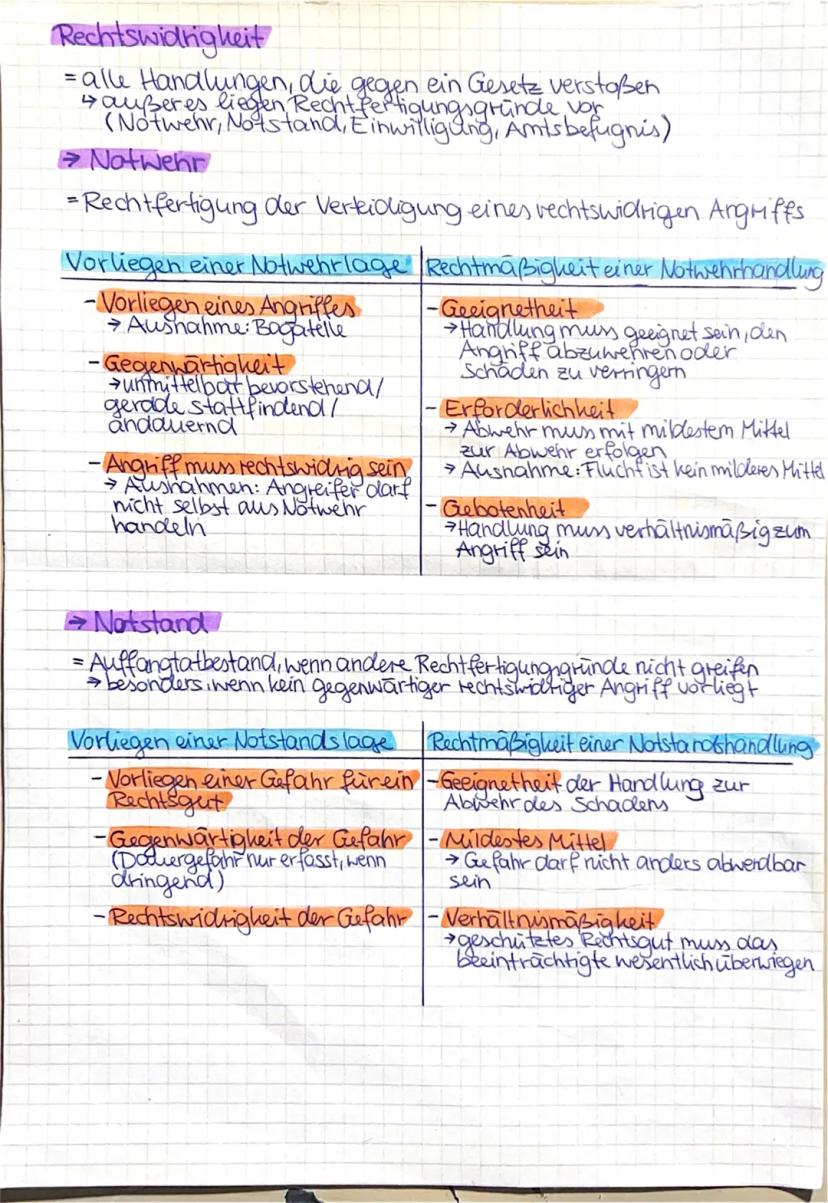 Rechtswidrigkeit
= alle Handlungen, die gegen ein Gesetz verstoßen
↳ außer es liegen Rechtfertigungsgründe vor
(Notwehr, Notstand, Einwilligung, Amtsbefugnis)
→ Notwehr
= Rechtfertigung der Verteidigung eines rechtswidrigen Angriffs
Vorliegen einer Notwehrlage
- Vorliegen eines Angriffes
→ Ausnahme: Bagatelle
- Gegenwärtigkeit
→ unmittelbar bevorstehend/
gerade stattfindend/
andauernd
- Angriff muss rechtswidrig sein
→ Ausnahmen: Angreifer darf
nicht selbst aus Notwehr
handeln
Rechtmäßigkeit einer Notwehrhandlung
- Geeignetheit
→ Handlung muss geeignet sein, den
Angriff abzuwehren oder
Schaden zu verringern
- Erforderlichkeit
→ Abwehr muss mit mildestem Mittel
zur Abwehr erfolgen
→ Ausnahme: Flucht ist kein milderes Mittel
- Gebotenheit
→ Handlung muss verhältnismäßig zum
Angriff sein
→ Notstand
= Auffangtatbestand, wenn andere Rechtfertigungsgründe nicht greifen
→ besonders, wenn kein gegenwärtiger rechtswidriger Angriff vorliegt
Vorliegen einer Notstandslage
- Vorliegen einer Gefahr für ein
Rechtsgut
- Gegenwärtigkeit der Gefahr
(Dauergefahr nur erfasst, wenn
dringend)
- Rechtswidrigkeit der Gefahr
Rechtmäßigkeit einer Notstandshandlung
- Geeignetheit der Handlung zur
Abwehr des Schadens
- Mildestes Mittel
→ Gefahr darf nicht anders abwendbar
sein
- Verhältnismäßigkeit
→ geschütztes Rechtsgut muss das
beeinträchtigte wesentlich überwiegen